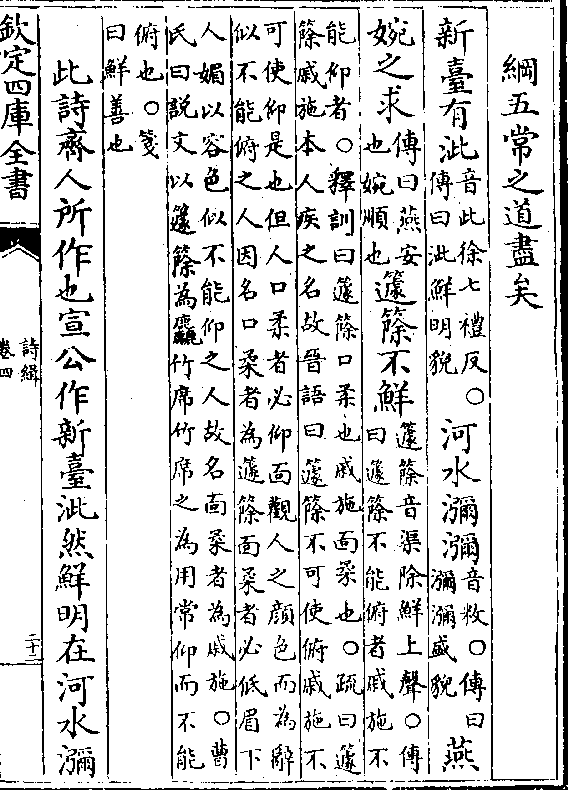 綱五常之道盡矣
新臺有泚音此徐七禮反○傳曰泚鮮明貌河水瀰瀰音敉○傳曰瀰瀰盛貌燕
婉之求傳曰燕安也婉順也籧篨不鮮籧篨音渠除鮮上聲○傳曰籧篨不能俯者戚施不
能仰者○釋訓曰籧篨口柔也戚施面柔也○疏曰籧
篨戚施本人疾之名故晉語曰籧篨不可使俯戚施不
可使仰是也但人口柔者必仰面觀人之顏色而為辭
似不能俯之人因名口柔者為籧篨面柔者必低眉下
人媚以容色似不能仰之人故名面柔者為戚施○曹
氏曰説文以籧篨為麤竹席竹席之為用常仰而不能
俯也○箋
曰鮮善也
此詩齊人所作也宣公作新臺泚然鮮明在河水瀰
欽定四庫全書
詩緝
卷四